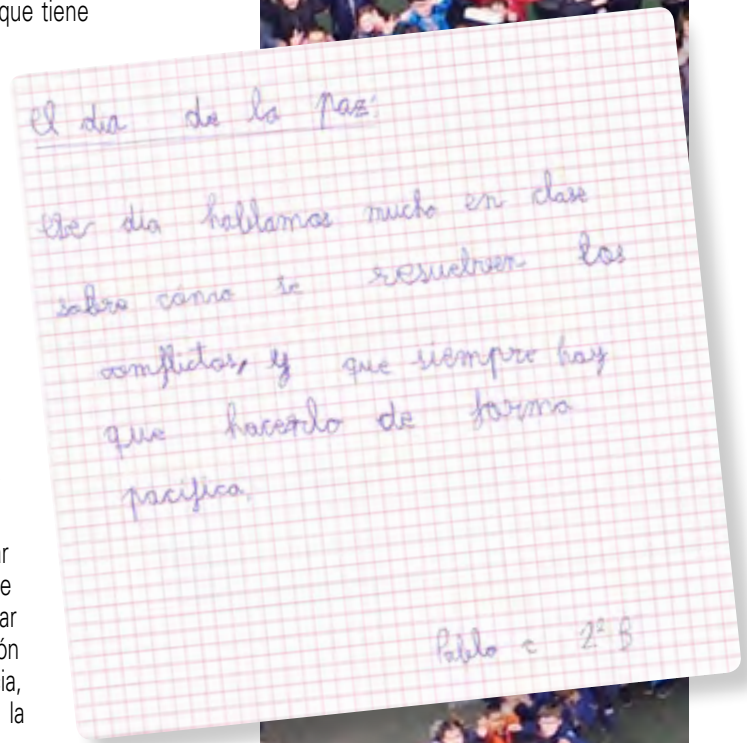 que tiene
el dia de la paz:
Ese dia hablamos mucho en clase
sobre cómo se resuelven los
comflictos, y que siempre hay
que hacerlo de forma
pacífica.
Pablo 2º B
ar
e
ar
ón
ia,
la